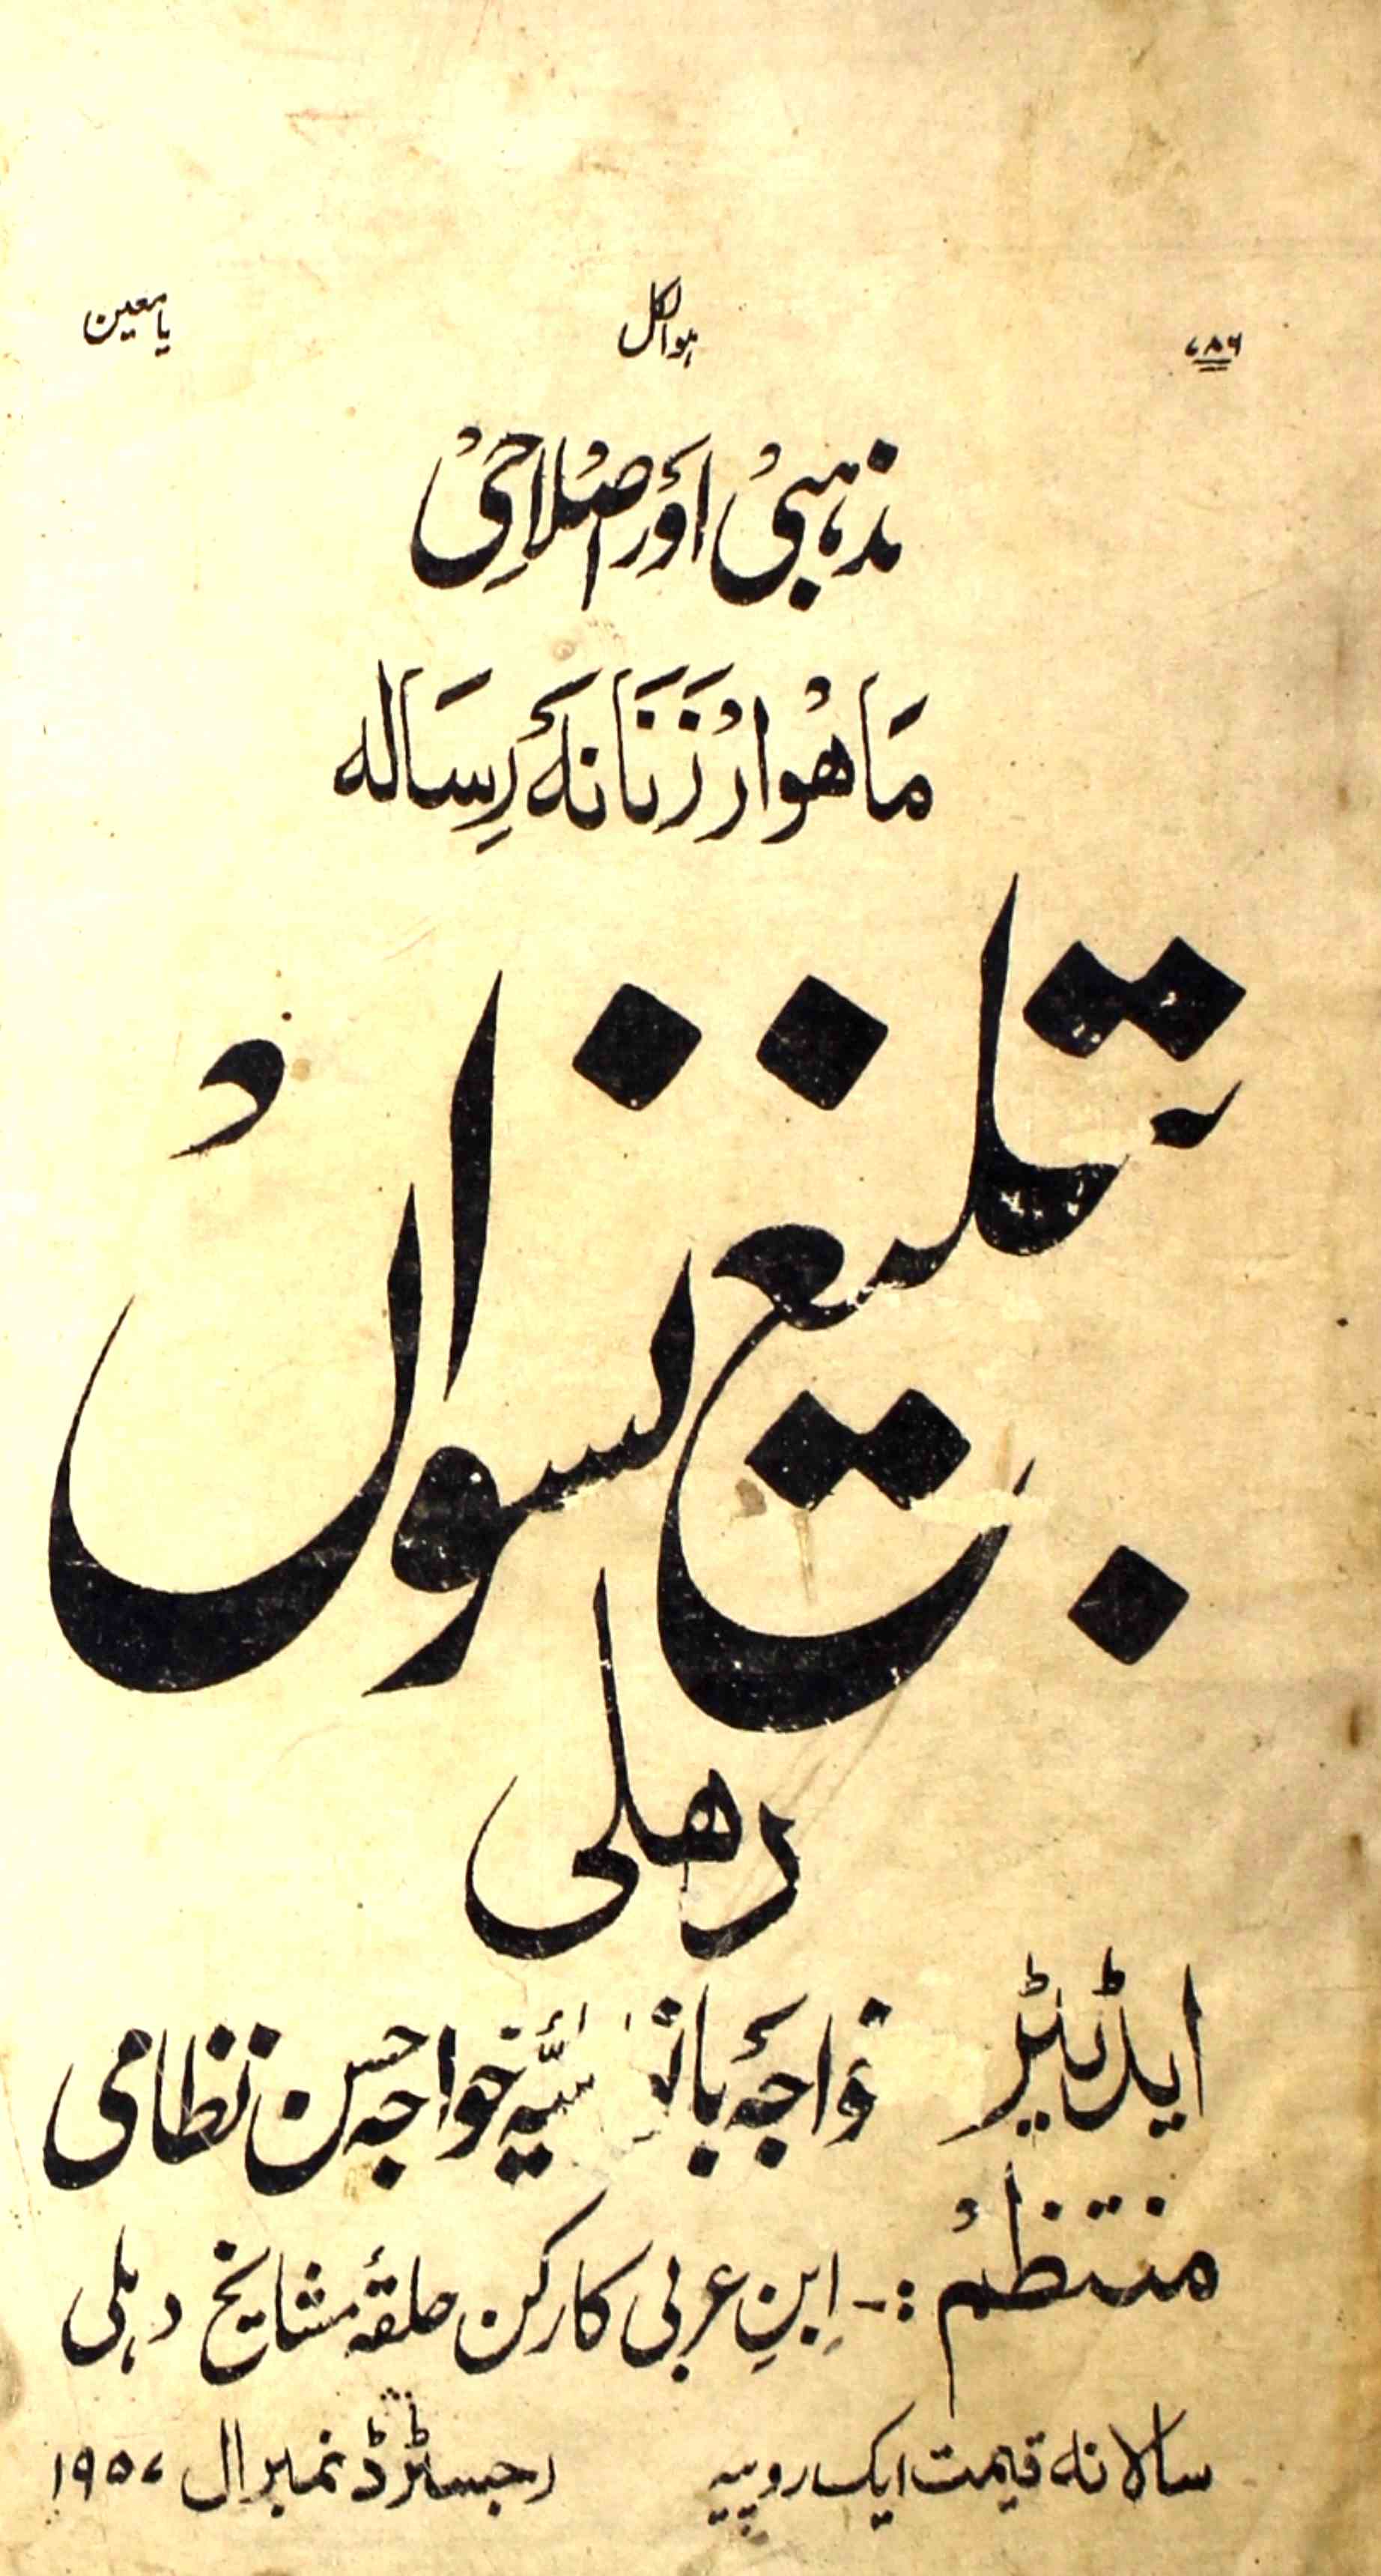 ۷۸۶ ہوالکل یا معین
مذہبی اور اصلاحی
ماہوار زنانہ رسالہ
تبلیغ نسواں
دھلی
ایڈیٹر خواجہ بانو سیدہ خواجہ حسن نظامی
منتظم :- ابنِ عربی کارکن حلقۂ مشایخ دہلی
سالانہ قیمت ایک روپیہ رجسٹرڈ نمبر ال ۱۹۵۷